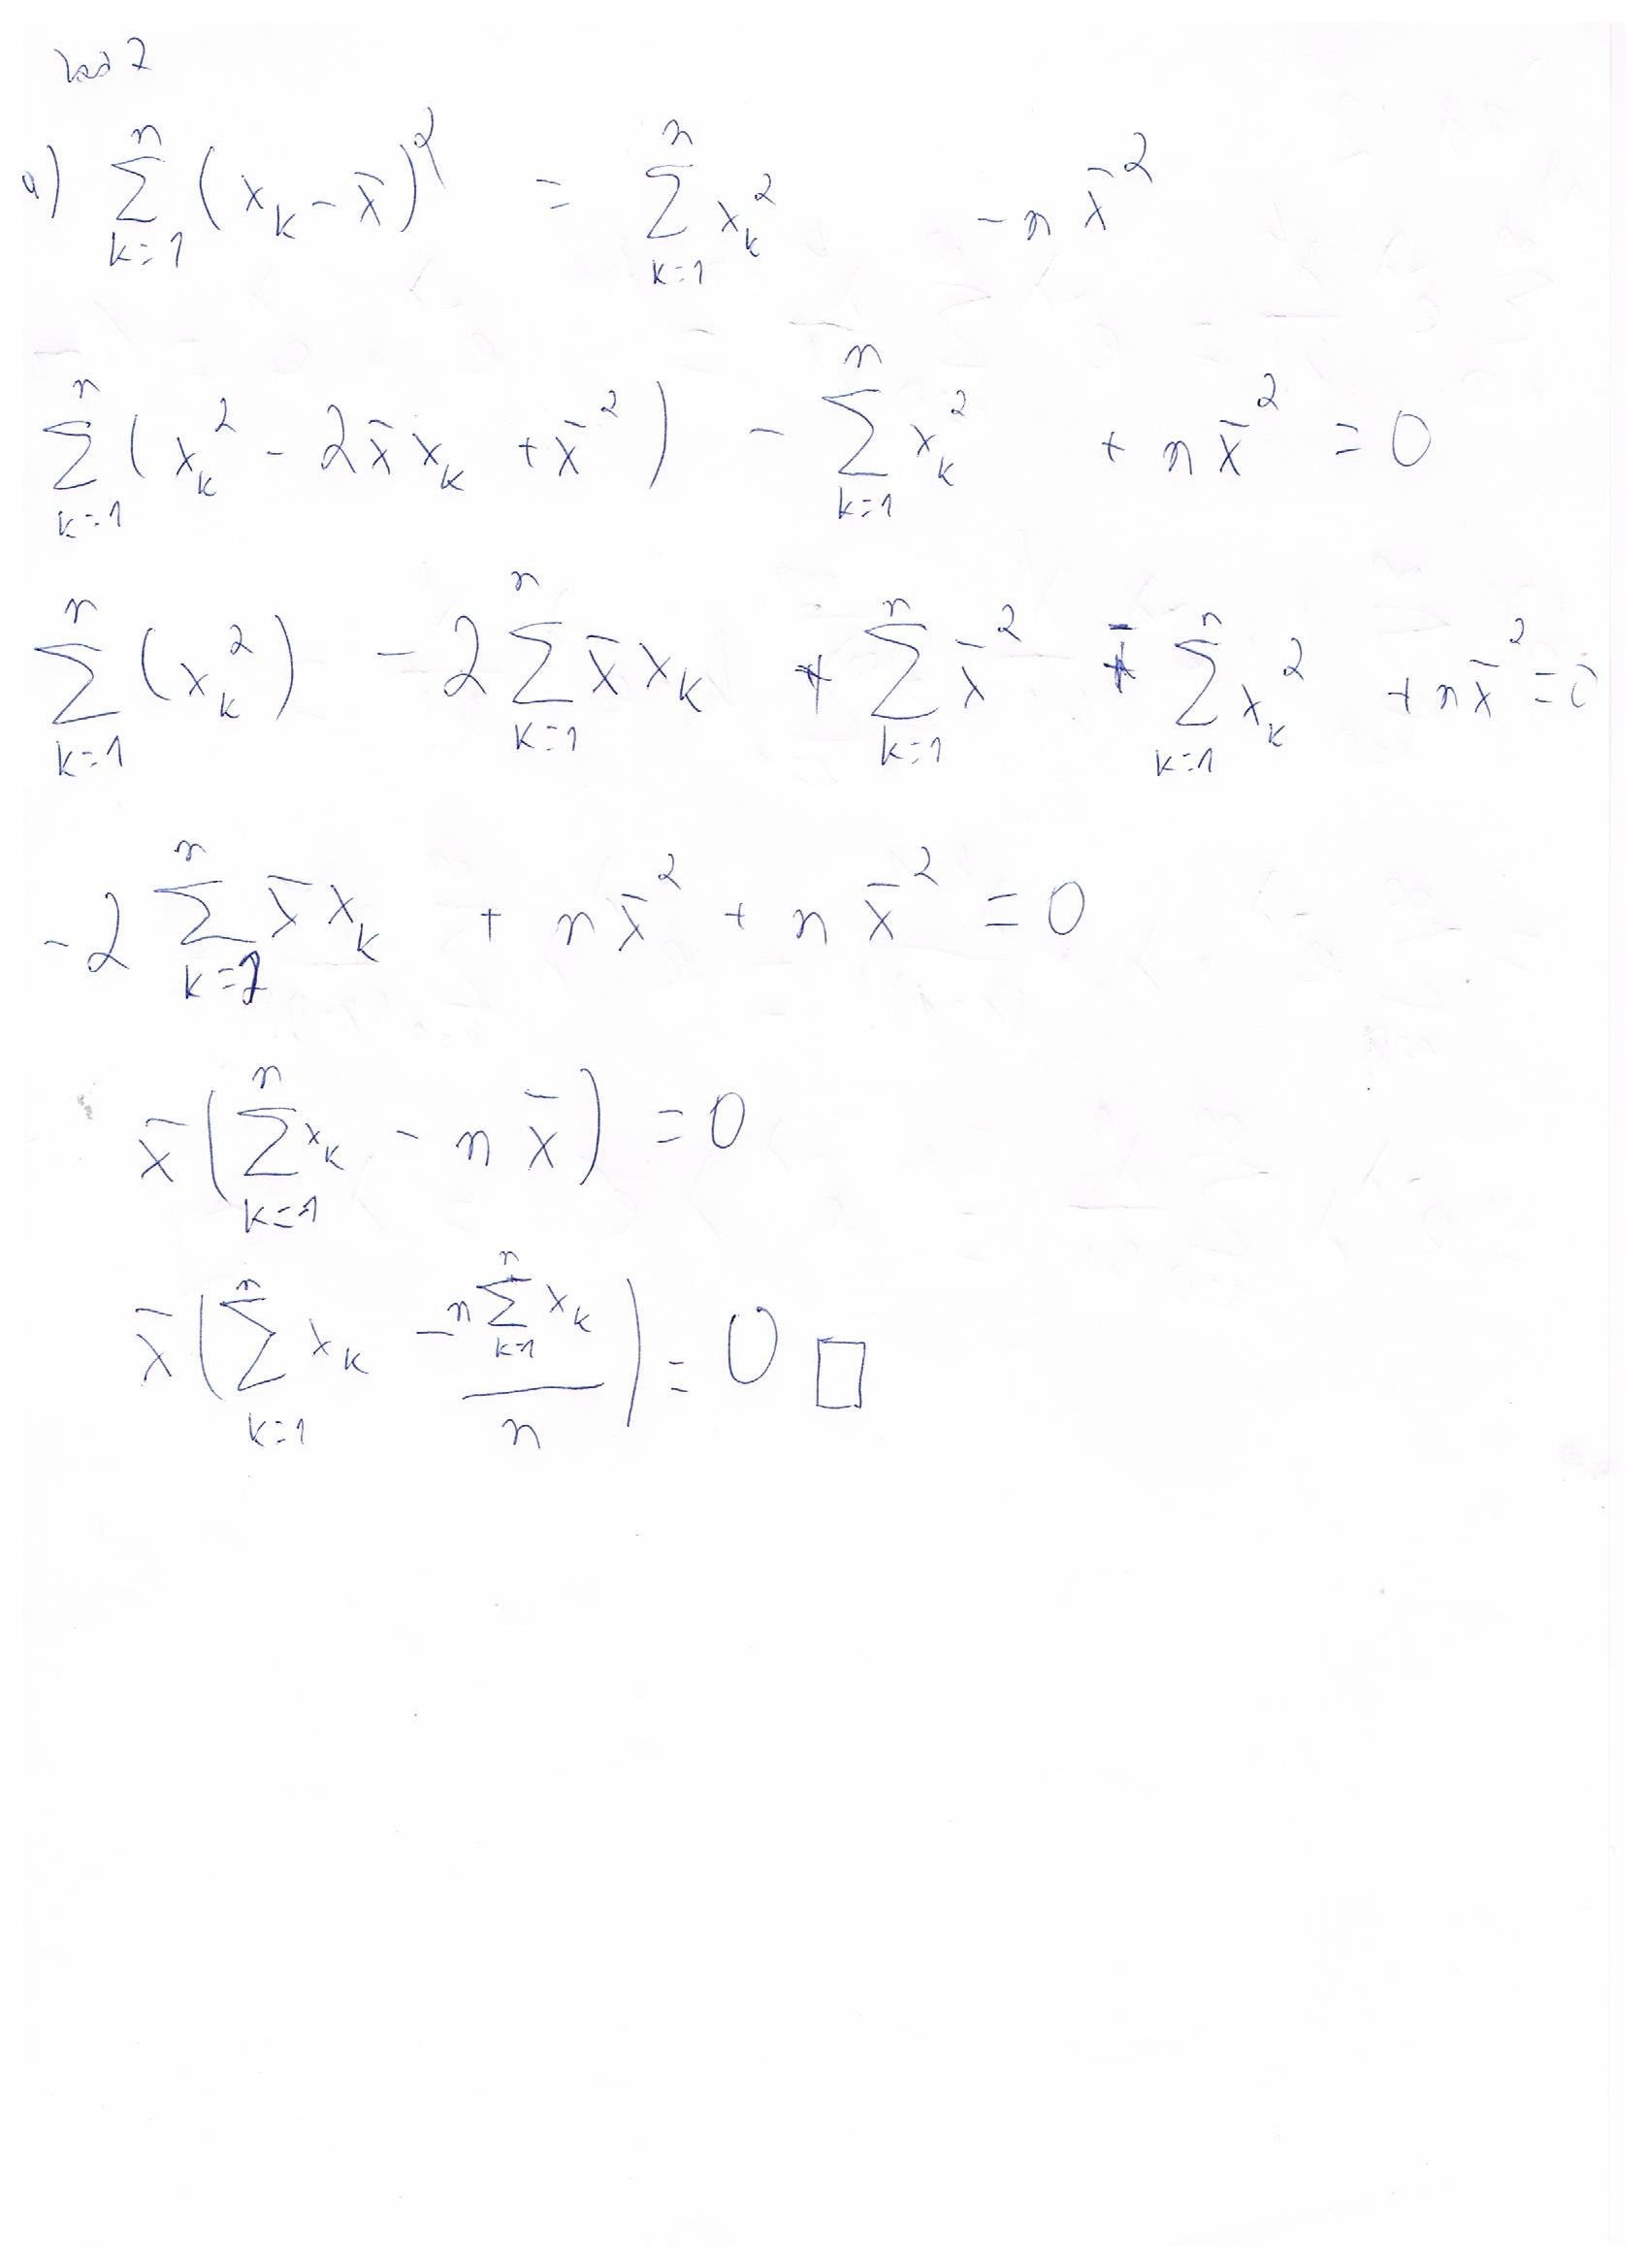 zad 2
a) \sum_{k=1}^{n} (x_k - \bar{x})^2 = \sum_{k=1}^{n} x_k^2 - n\bar{x}^2
\sum_{k=1}^{n} (x_k^2 - 2\bar{x}x_k + \bar{x}^2) - \sum_{k=1}^{n} x_k^2 + n\bar{x}^2 = 0
\sum_{k=1}^{n} (x_k^2) - 2\sum_{k=1}^{n} \bar{x}x_k + \sum_{k=1}^{n} \bar{x}^2 - \sum_{k=1}^{n} x_k^2 + n\bar{x}^2 = 0
-2\sum_{k=1}^{n} \bar{x}x_k + n\bar{x}^2 + n\bar{x}^2 = 0
\bar{x}(\sum_{k=1}^{n} x_k - n\bar{x}) = 0
\bar{x}(\sum_{k=1}^{n} x_k - \frac{n\sum_{k=1}^{n} x_k}{n}) = 0 □